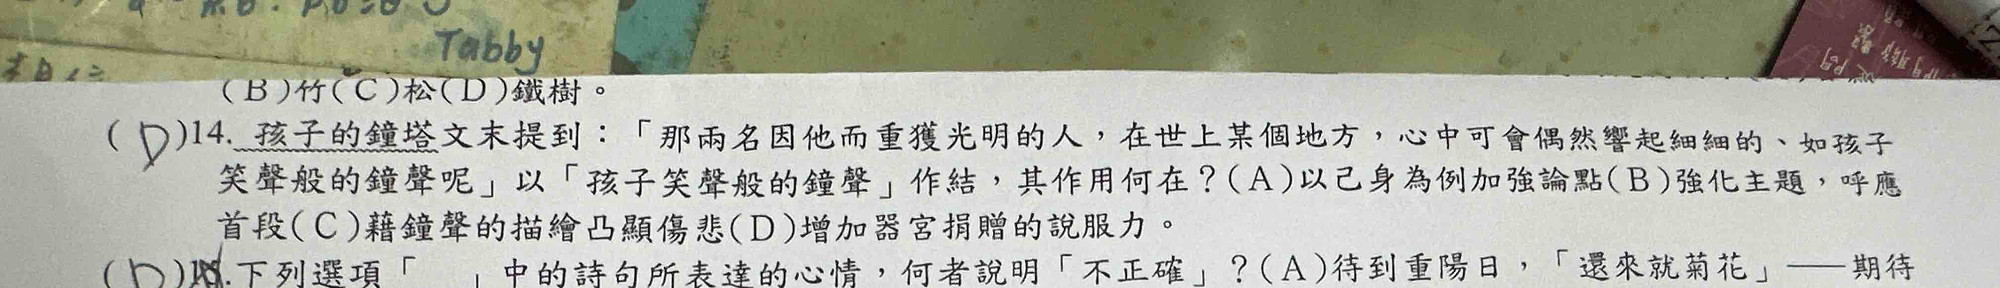 Tabby
(B)竹(C)松(D)鐵樹。
(D)14. 孩子的鐘塔文末提到：「那兩名因他而重獲光明的人，在世上某個地方，心中可會偶然響起細細的、如孩子
笑聲般的鐘聲呢」以「孩子笑聲般的鐘聲」作結，其作用何在？(A)以己身為例加強論點(B)強化主題，呼應
首段(C)藉鐘聲的描繪凸顯傷悲(D)增加器宮捐贈的說服力。
(D) .下列選項「　」中的詩句所表達的心情，何者說明「不正確」？(A)待到重陽日，「還來就菊花」──期待